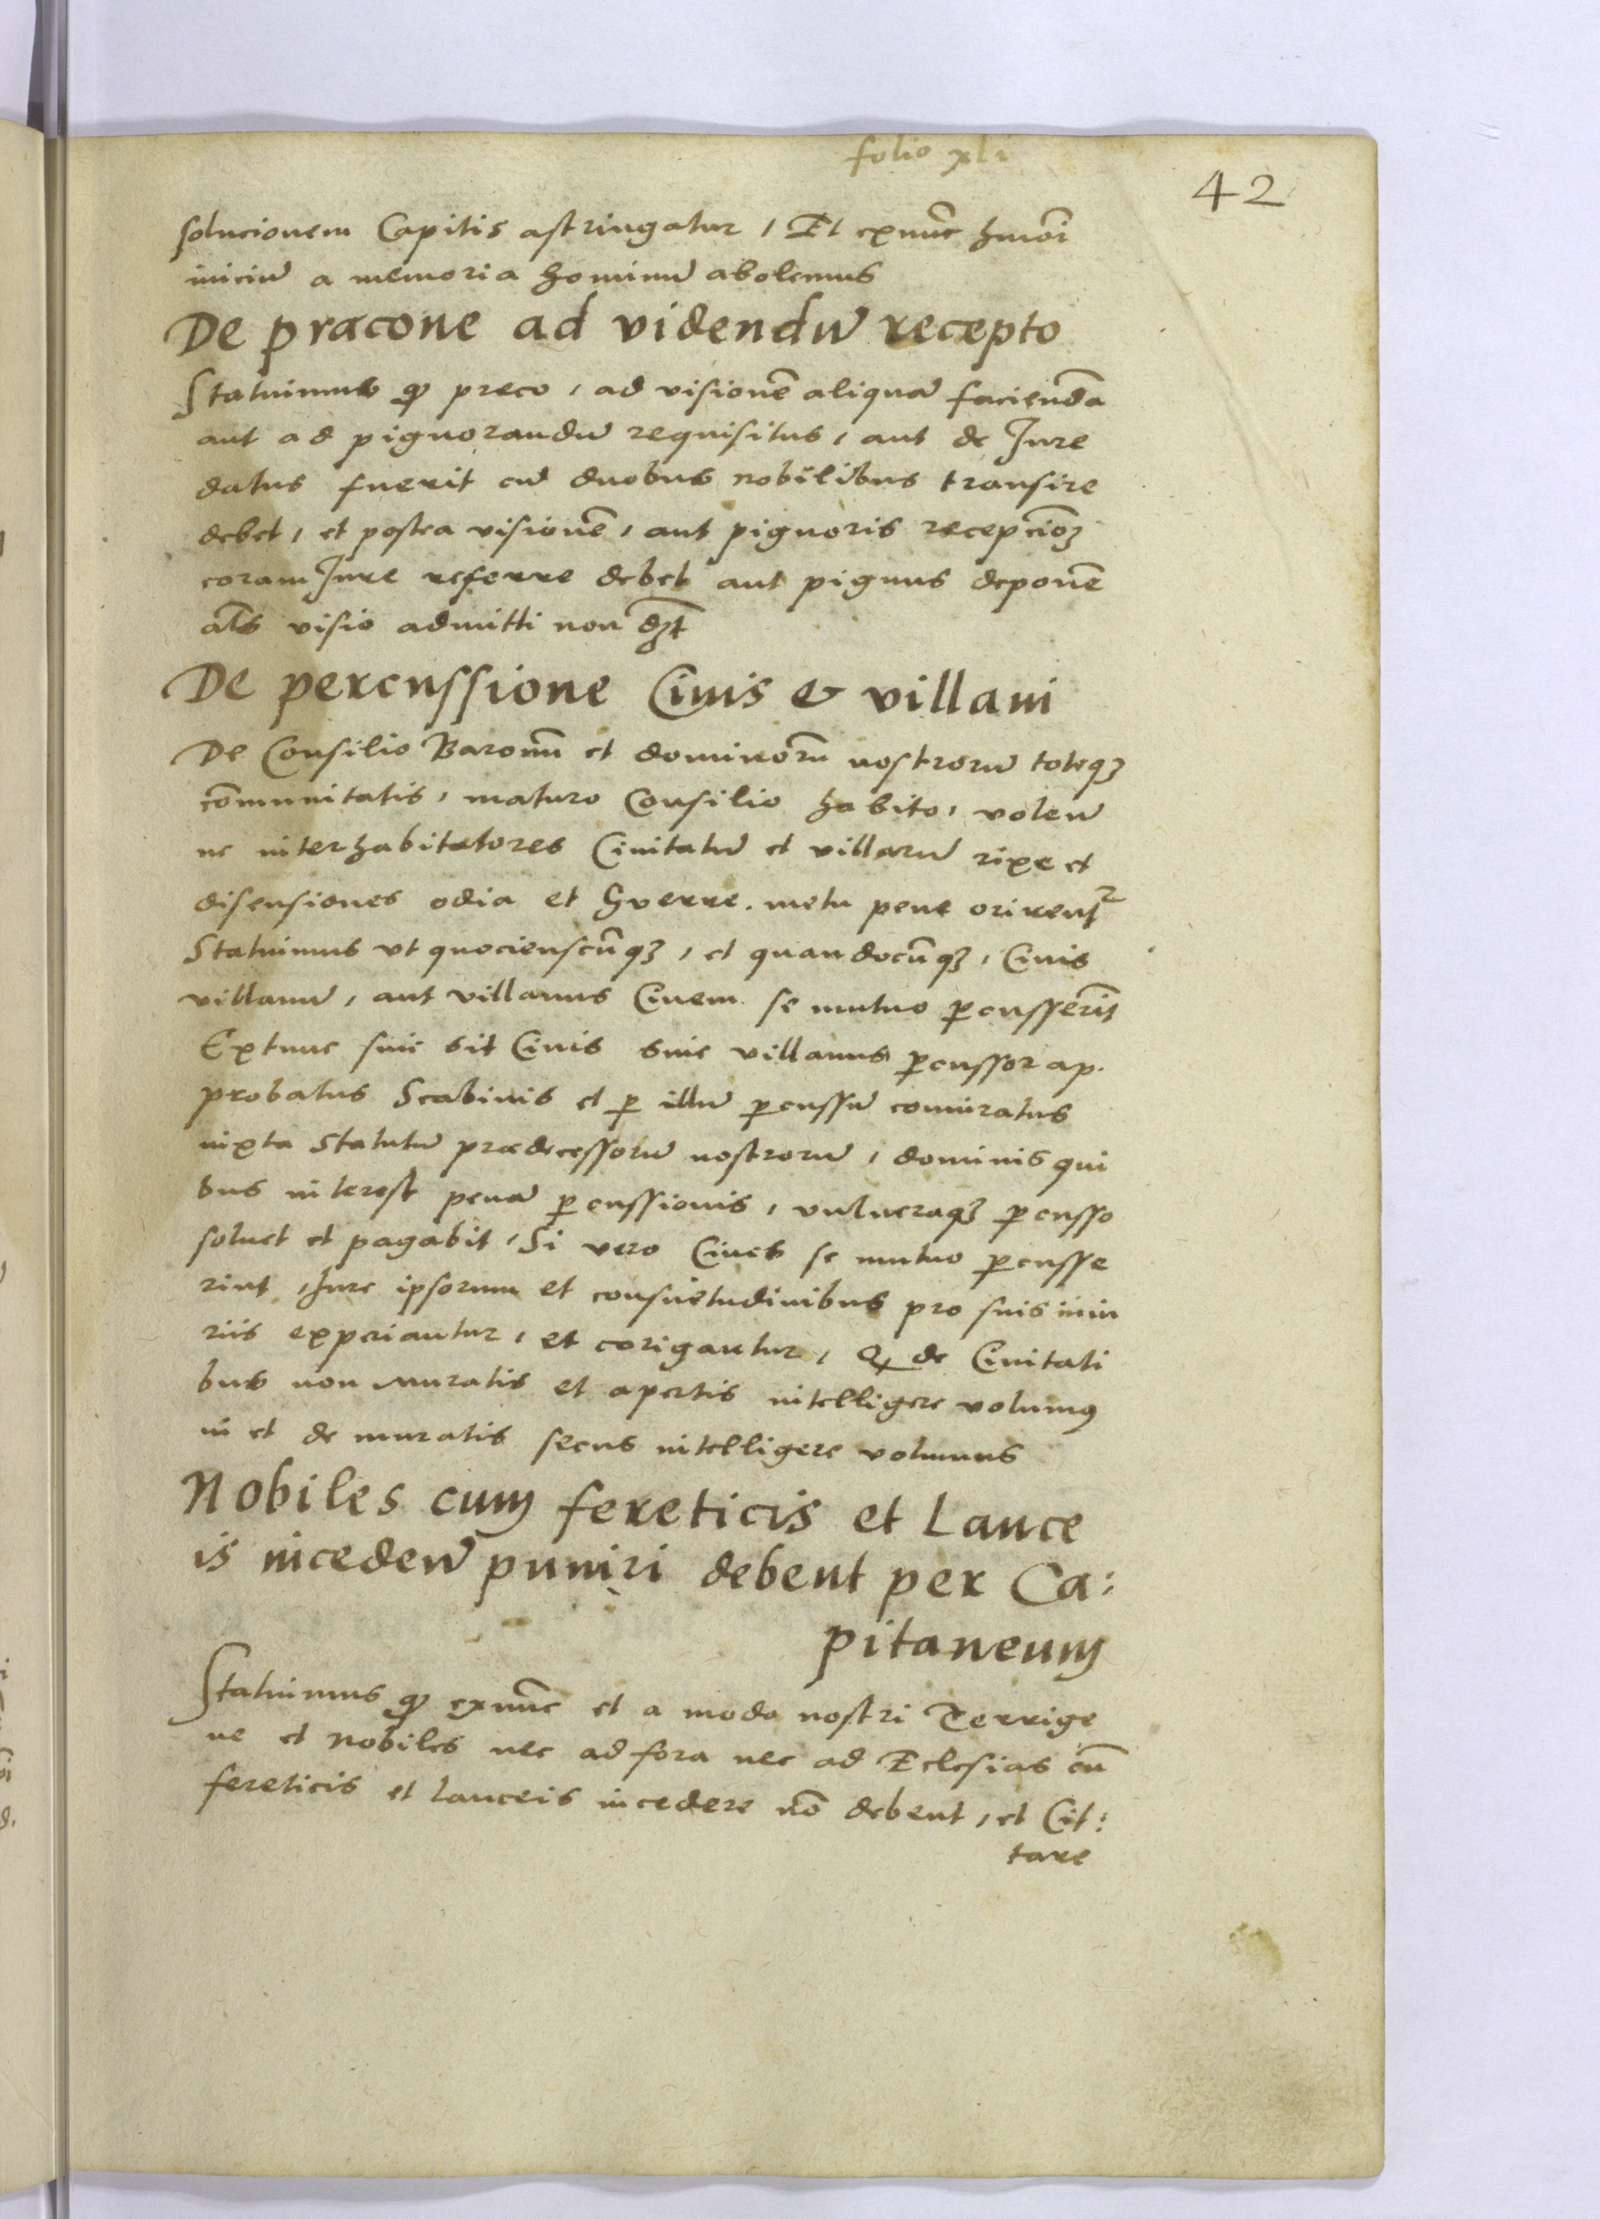 folio xli
42
solucionem Capitis astringatur, Et exnūc hmōi
iniciū a memoria hominū abolemus
De præcone ad videndū recepto
Statuimus qͦ preco, ad visionē aliquā faciendā
aut ad pignorandū requisitus, aut de Jure
datus fuerit cū duobus nobilibus transire
debet, et postea visionē, aut pignoris recepcioꝫ
coram Jure referre debet aut pignus deponē
als visio admitti non dꝫt
De percussione Ciuis & villani
De Consilio Baronū et dominorū nostrorū toteqꝫ
cōmunitatis, maturo Consilio habito, volen̄
ne inter habitatores Ciuitatū et villarū rixe et
disensiones odia et Gverre. metu pene orirent᷑
Statuimus vt quociens cūqꝫ, et quandocūqꝫ, Ciuis
villanū, aut villanus Ciuem se mutuo ꝑcusserīt
Extunc siue sit Ciuis siue villanus ꝑcussor ap.
probatus Scabinis et ꝑ illū ꝑcussū coniuratus
iuxta Statutū prædecessorū nostrorū, dominis qui
bus interest penā ꝑcussionis, vulneraqꝫ ꝑcusso
soluet et pagabit, Si vero Ciues se mutuo ꝑcusse
rint, Jure ipsorum et consuetudinibus pro suis iniu
riis experiantur, et corigantur, Qͦ de Ciuitati
bus non muratis et apertis intelligere volumꝰ
ni et de muratis secus intelligere volumus
Nobiles cum fereticis et Lance
is inceden̄ puniri debent per Ca:
pitaneum
Statuimus qͦ exnūc et a modo nostri Terrige
ne et nobiles nec ad fora nec ad Eclesias cū
fereticis et lanceis incedere nō debent, et Cit:
tare